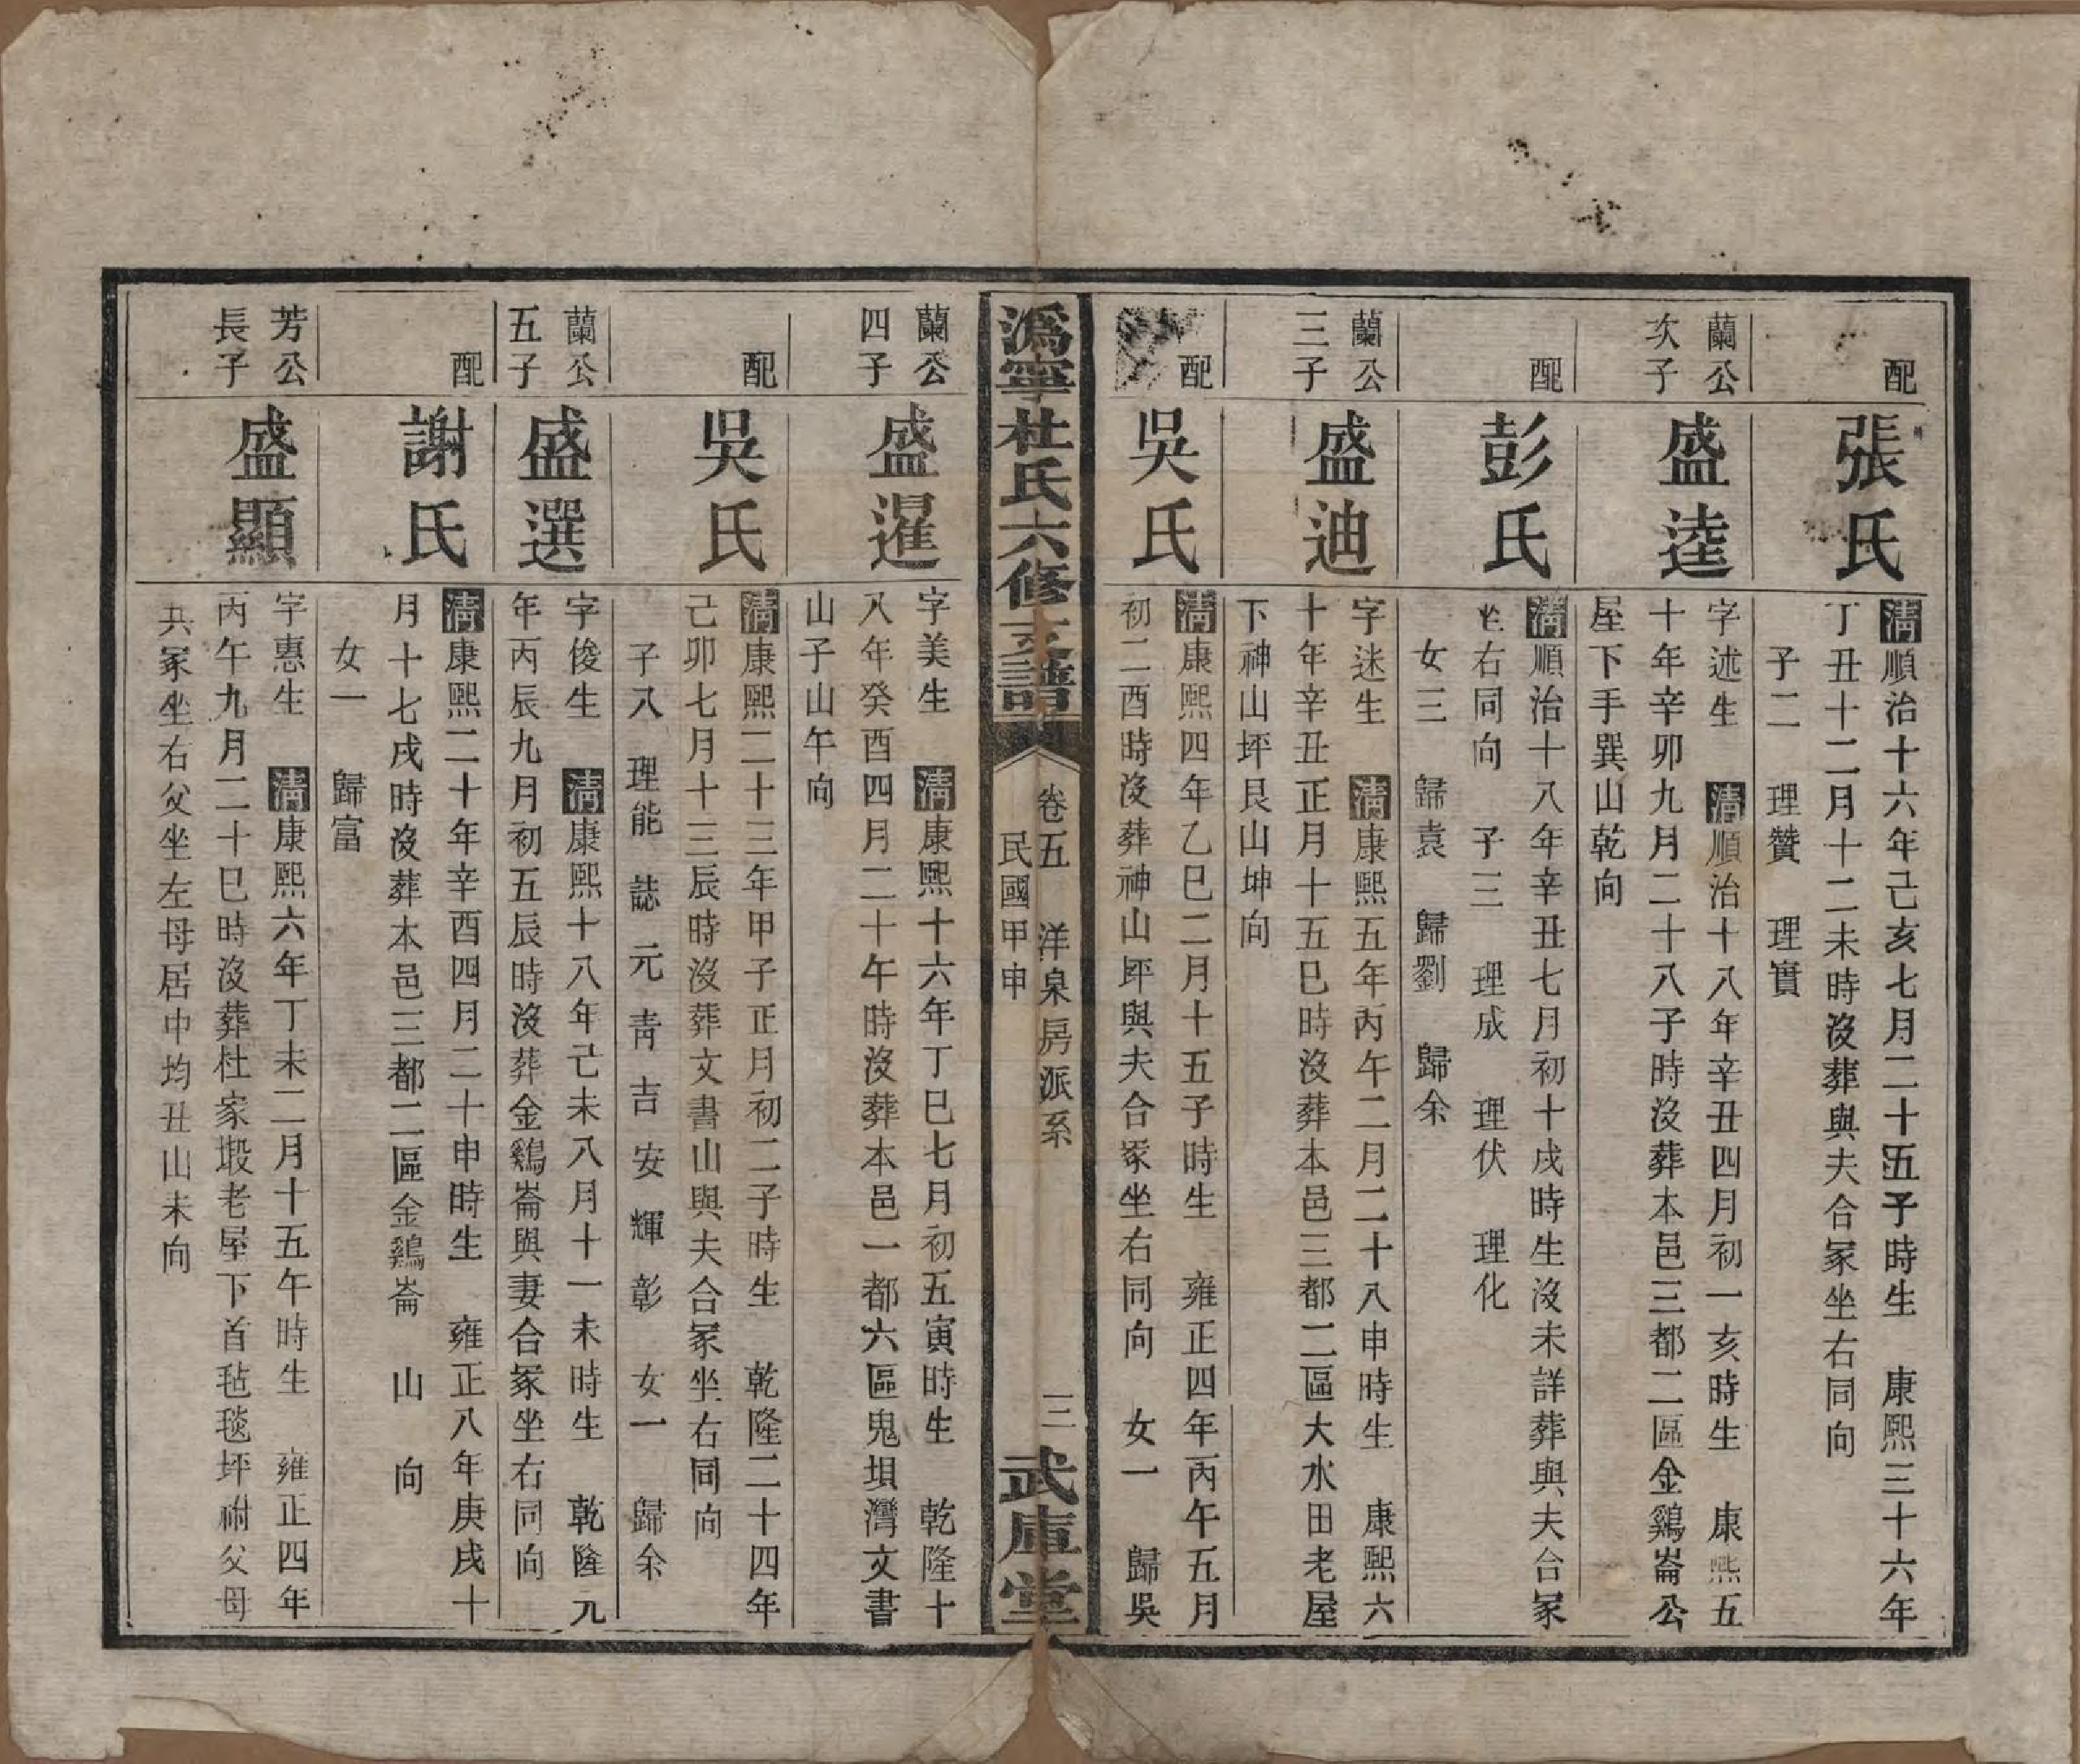 配
張氏
清順治十六年己亥七月二十五子時生　康熙三十六年
丁丑十二月十二未時沒葬與夫合冢坐右同向
子二　理贊　理實
蘭公
次子
盛逵
字述生　清順治十八年辛丑四月初一亥時生　康熙五
十年辛卯九月二十八子時沒葬本邑三都二區金鷄崙公
屋下手巽山乾向
配
彭氏
清順治十八年辛丑七月初十戌時生沒未詳葬與夫合冢
坐右同向　子三　理成　理伏　理化
女三　歸袁　歸劉　歸余
蘭公
三子
盛迪
字迷生　清康熙五年丙午二月二十八申時生　康熙六
十年辛丑正月十五巳時沒葬本邑三都二區大水田老屋
下神山坪艮山坤向
配
吳氏
清康熙四年乙巳二月十五子時生　雍正四年丙午五月
初二酉時沒葬神山坪與夫合冢坐右同向　女一　歸吳
溈寧杜氏六修支譜
卷五　洋泉房派系
民國甲申
三
武庫堂
蘭公
四子
盛暹
字美生　清康熙十六年丁巳七月初五寅時生　乾隆十
八年癸酉四月二十午時沒葬本邑一都六區鬼埧灣文書
山子山午向
配
吳氏
清康熙二十三年甲子正月初二子時生　乾隆二十四年
己卯七月十三辰時沒葬文書山與夫合冢坐右同向
子八　理能　誌　元　靑　吉　安　輝　彰　女一　歸余
蘭公
五子
盛選
字俊生　清康熙十八年己未八月十一未時生　乾隆元
年丙辰九月初五辰時沒葬金鷄崙與妻合冢坐右同向
配
謝氏
清康熙二十年辛酉四月二十申時生　雍正八年庚戌十
月十七戌時沒葬本邑三都二區金鷄崙　山　向
女一　歸富
芳公
長子
盛顯
字惠生　清康熙六年丁未二月十五午時生　雍正四年
丙午九月二十巳時沒葬杜家塅老屋下首毡毯坪祔父母
共冢坐右父坐左母居中均丑山未向